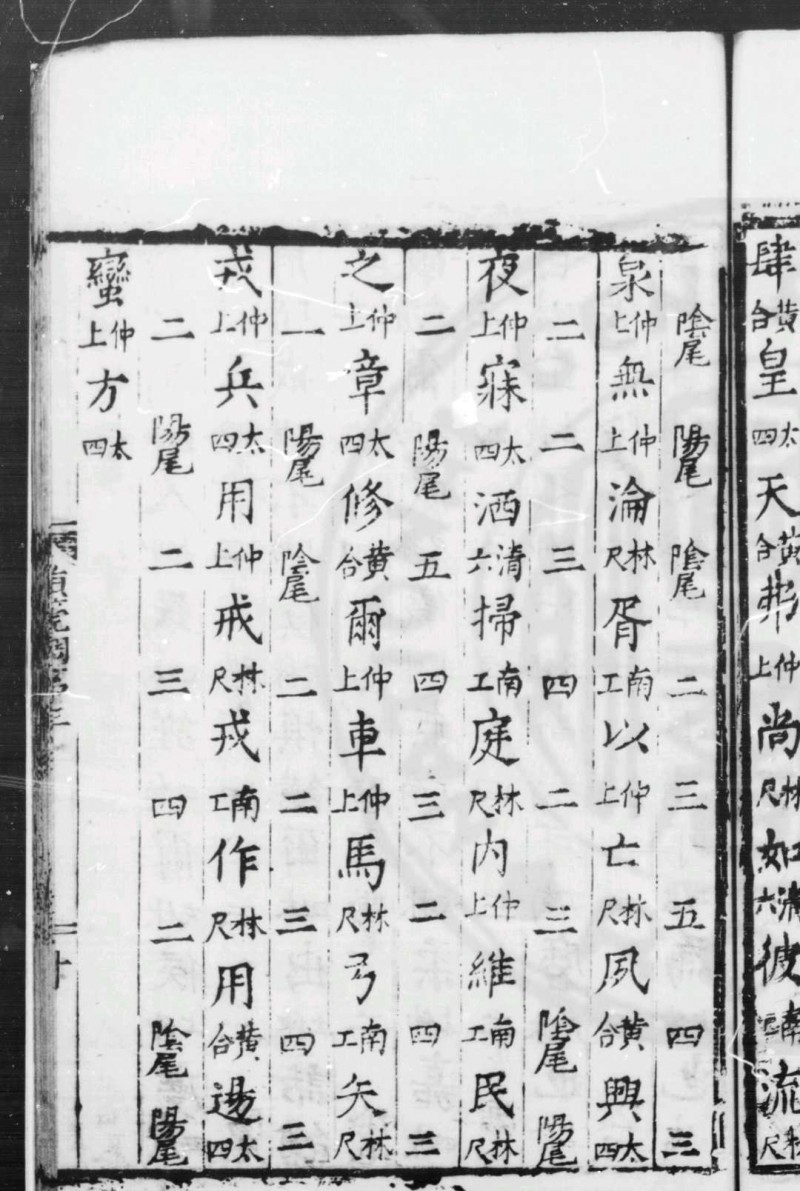 肆黃合皇太四天黃合弗仲上尚林尺如清六彼南工流林尺
陰尾 陽尾 陰尾 二 三 五 四 三
泉仲上無仲上淪林尺胥南工以仲上亡林尺夙黃合興太四
二 二 三 四 二 三 陰尾 陽尾
夜仲上寐太四洒清六掃南工庭林尺內仲上維南工民林尺
二 陽尾 五 四 三 二 四 三
之仲上章太四修黃合爾仲上車仲上馬林尺弓南工矢林尺
一 陽尾 陰尾 二 二 三 四 三
戎仲上兵太四用仲上戒林尺戎南工作林尺用黃合逷太四
二 陽尾 二 三 四 二 陰尾 陽尾
蠻仲上方太四
十